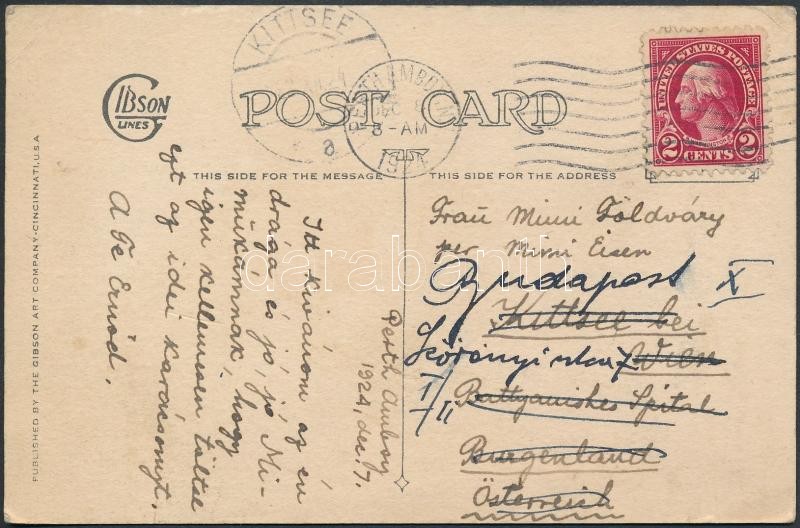 KITTSEE
PERTH AMBOY, N.J.
DEC 8
8-AM
1924
UNITED STATES POSTAGE
WASHINGTON
2 CENTS 2
GIBSON
LINES
POST CARD
THIS SIDE FOR THE MESSAGE
THIS SIDE FOR THE ADDRESS
PUBLISHED BY THE GIBSON ART COMPANY-CINCINNATI, U.S.A.
Perth Amboy
1924, dec. 7.
Itt kivánom az én
drága és jó, jó Mi-
mükámnak, hogy
igen kellemesen töltse
ezt az idei karácsonyt.
A Te Ernőd.
Frau Mimi Földváry
per Mimi Eisen
Budapest
X
Kittsee bei
Wien
7
I/11
Battyanishes Spital
Burgenland
Österreich
darabanth.com